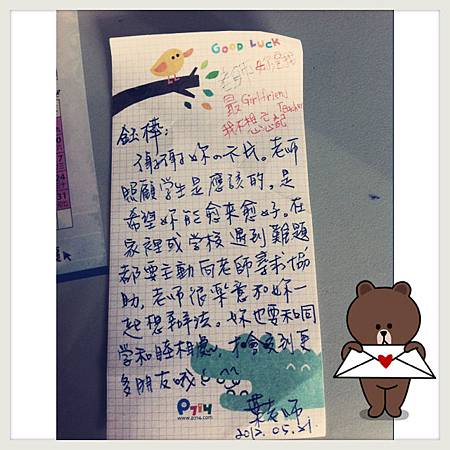 GOOD LUCK
老師妳是我
最Girlfriend
Teacher
我不想忘記
鈺棒:
謝謝妳的卡片。老師
照顧學生是應該的,是
希望妳能愈來愈好。在
家裡或學校遇到難題
都要主動向老師尋求協
助,老師很樂意和妳一
起想辦法。妳也要和同
學和睦相處,才會交到更
多朋友哦
葉老師
2013.05.21
P714
www.p714.com